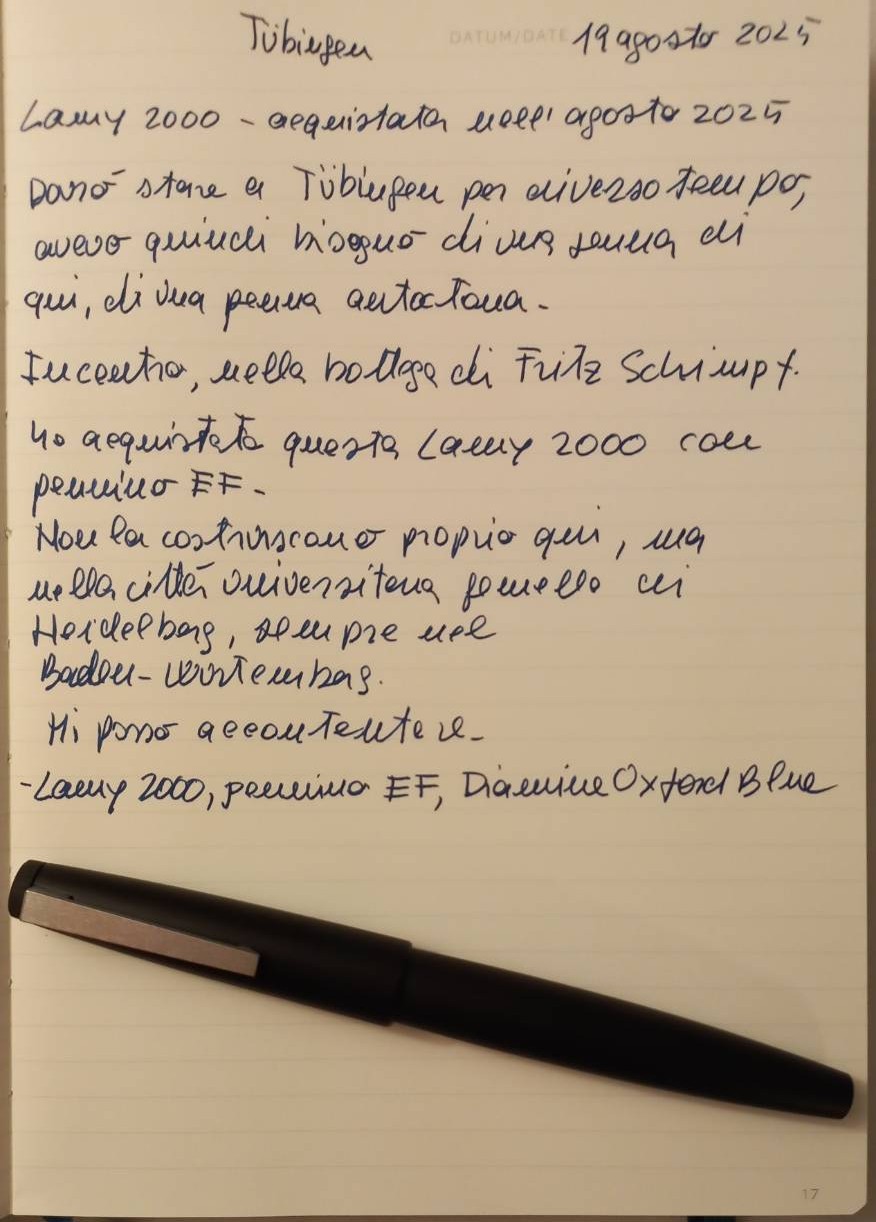 Tübingen DATUM/DATE 19 agosto 2025
Lamy 2000 - acquistata nell' agosto 2025
Dovrò stare a Tübingen per diverso tempo,
avevo quindi bisogno di una penna di
qui, di una penna autoctona.
In centro, nella bottega di Fritz Schimpf.
Ho acquistato questa Lamy 2000 con
pennino EF.
Non la costruiscono proprio qui, ma
nella città universitaria gemella di
Heidelberg, sempre nel
Baden-Württemberg.
Mi posso accontentare.
-Lamy 2000, pennino EF, Diamine Oxford Blue
17